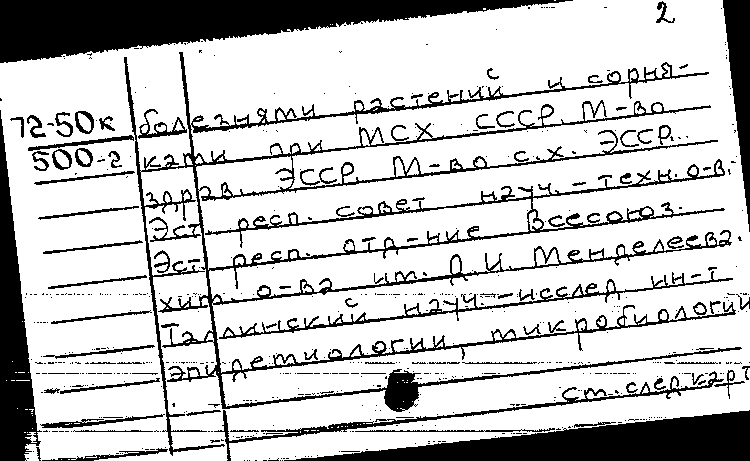 2
72-50к болезнями растений и сорня-
500-г ками при МСХ СССР. М-во
здрав. ЭССР. М-во с.х. ЭССР.
Эст. респ. совет науч.-техн. о-в.
Эст. респ. отд-ние Всесоюз.
хим. о-ва им. Д.И. Менделеева.
Таллинский науч.-исслед ин-т
эпидемиологии, микробиологии
ст. след. карт